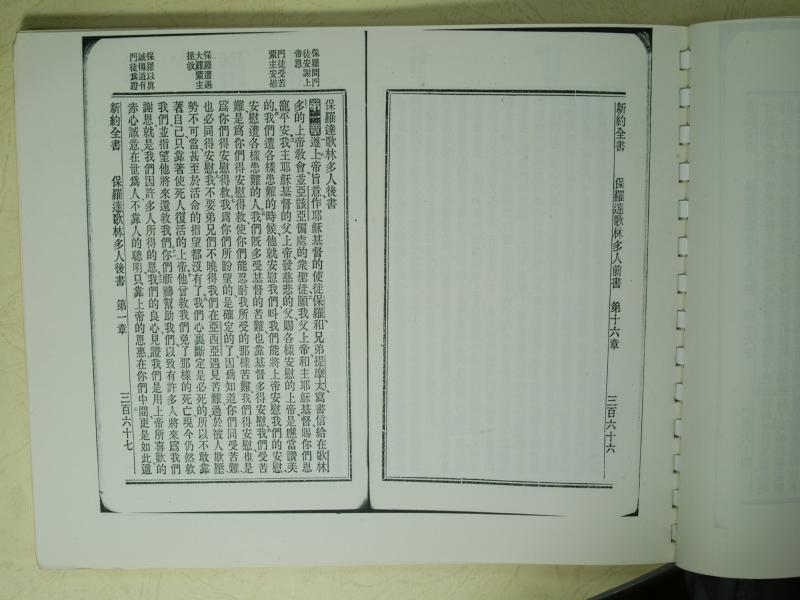 新約全書 保羅達歌林多人前書 第十六章 三百六十六
保羅問門
徒安謝上
帝恩
門徒受苦
蒙主安慰
保羅遭遇
大難蒙主
拯救
保羅以眞
誠傳道有
門徒爲證
保羅達歌林多人後書
第一章遵上帝旨意作耶穌基督的使徒保羅和兄弟提摩太寫書信給在歌林
多的上帝敎會並亞該亞徧處的衆聖徒願我父上帝和主耶穌基督賜你們恩
寵平安我主耶穌基督的父上帝發慈悲的父賜各樣安慰的上帝是應當讚美
的我們遭各樣患難的時候他就安慰我們呌我們能將上帝安慰我們的安慰
安慰遭各樣患難的人我們旣多受基督的苦難也靠基督多得安慰我們受苦
難是爲你們得安慰得救使你們能忍耐我所受的那樣苦難我們得安慰也是
爲你們得安慰得救我爲你們所盼望的是確定的了因爲知道你們同受苦難
也必同得安慰我不要弟兄們不曉得我們在亞西亞遇見苦難過於被人欺壓
勢不可當甚至於活命的指望都沒有了我們心裏斷定是必死的所以不敢靠
著自己只靠著使死人復活的上帝他曾救我們免了那樣的死亡現今仍然救
我們並指望他將來還救我們你們祈禱幫助我們以致有許多人將來爲我們
謝恩就是我們因許多人所得的恩我們的良心見證我們是用上帝所喜歡的
赤心誠意在世爲人不靠人的聰明只靠上帝的恩惠在你們中間更是如此還
新約全書 保羅達歌林多人後書 第一章 三百六十七